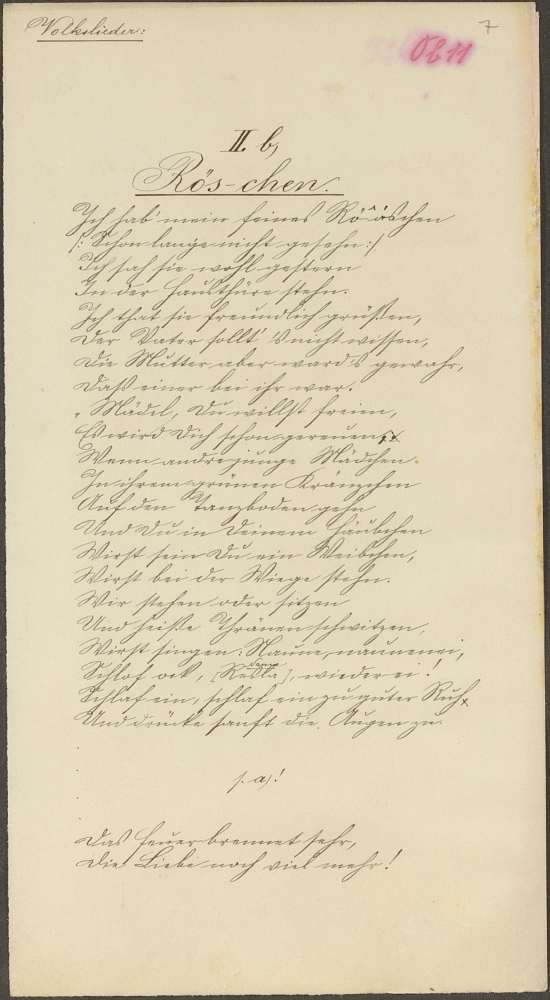 Volkslieder:
7
Ob 11
II. b,
Rös-chen.
Ich hab' mein feines Rö-ös-chen
/: Schon lange nicht gesehn :/
Ich sah sie wohl gestern
In der Hausthüre stehn.
Ich that sie freundlich grüßen,
Der Vater sollt' 's nicht wissen,
Die Mutter aber ward's gewahr,
Daß einer bei ihr war.
„Mädel, Du willst freien,
Es wird Dich schon gereuen
Wenn andre junge Mädchen
In ihrem grünen Kränzchen
Auf den Tanzboden gehn
Und Du in Deinem Häubchen
Wirst sein Du ein Weibchen,
Wirst bei der Wiege stehn.
Wir stehen oder sitzen
Und heiße Thränen schwitzen,
Wirst singen: Naune, naunenei,
Schlof ock, wieder ei!
Schlaf ein, schlaf ein zu guter Ruh
Und drücke sanft die Augen zu
s. a)!
Das Feuer brennet sehr,
Die Liebe noch viel mehr!